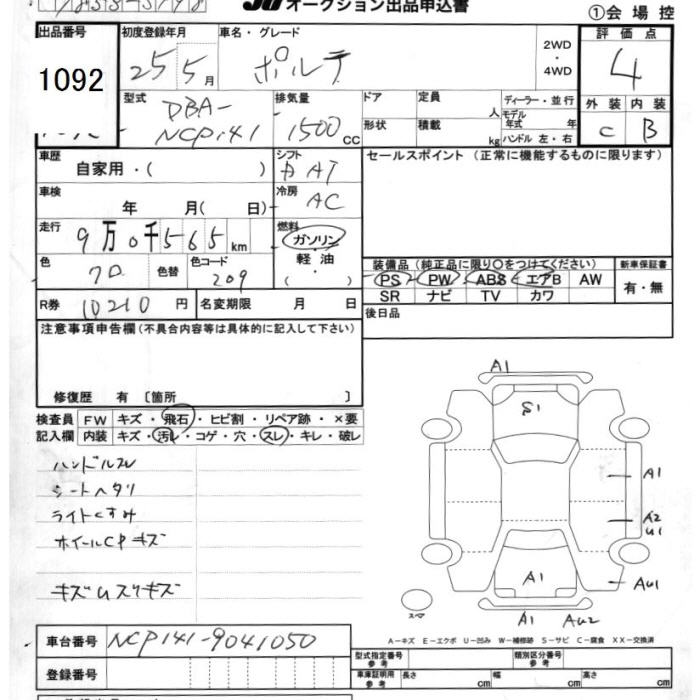 オークション出品申込書
①会場控
出品番号 初度登録年月 車名・グレード 2WD・4WD 評価点
1092 25年 5月 ポルテ 4
型式 排気量 ドア 定員 人 ディーラー・並行 外装 内装
DBA-NCP141 1500cc 形状 積載 kg モデル年式 年 ハンドル 左・右 C B
車歴 自家用・( ) シフト AT セールスポイント (正常に機能するものに限ります)
車検 年 月( 日) 冷房 AC
走行 9万0千565km 燃料 ガソリン 軽油 ( ・ )
装備品 (純正品に限り〇をつけてください) 新車保証書
色 クロ 色替 色コード 209 PS PW ABS エアB AW 有・無
SR ナビ TV カワ
R券 10210円 名変期限 月 日 後日品
注意事項申告欄(不具合内容等は具体的に記入して下さい)
修復歴 有〔箇所 〕
検査員 FW キズ・飛石・ヒビ割・リペア跡・×要
記入欄 内装 キズ・汚レ・コゲ・穴・スレ・キレ・破レ
ハンドルスレ
シートヘタリ
ライトくすみ
ホイールCPキズ
キズUスリキズ
A1
S1
A1
A2
U1
A1
AU1
スペア
A1 AU2
A-キズ E-エクボ U-凹み W-補修跡 S-サビ C-腐食 XX-交換済
車台番号 NCP141-9041050
型式指定番号 参考 類別区分番号 参考
登録番号 車庫証明用 参考 長さ cm 幅 cm 高さ cm